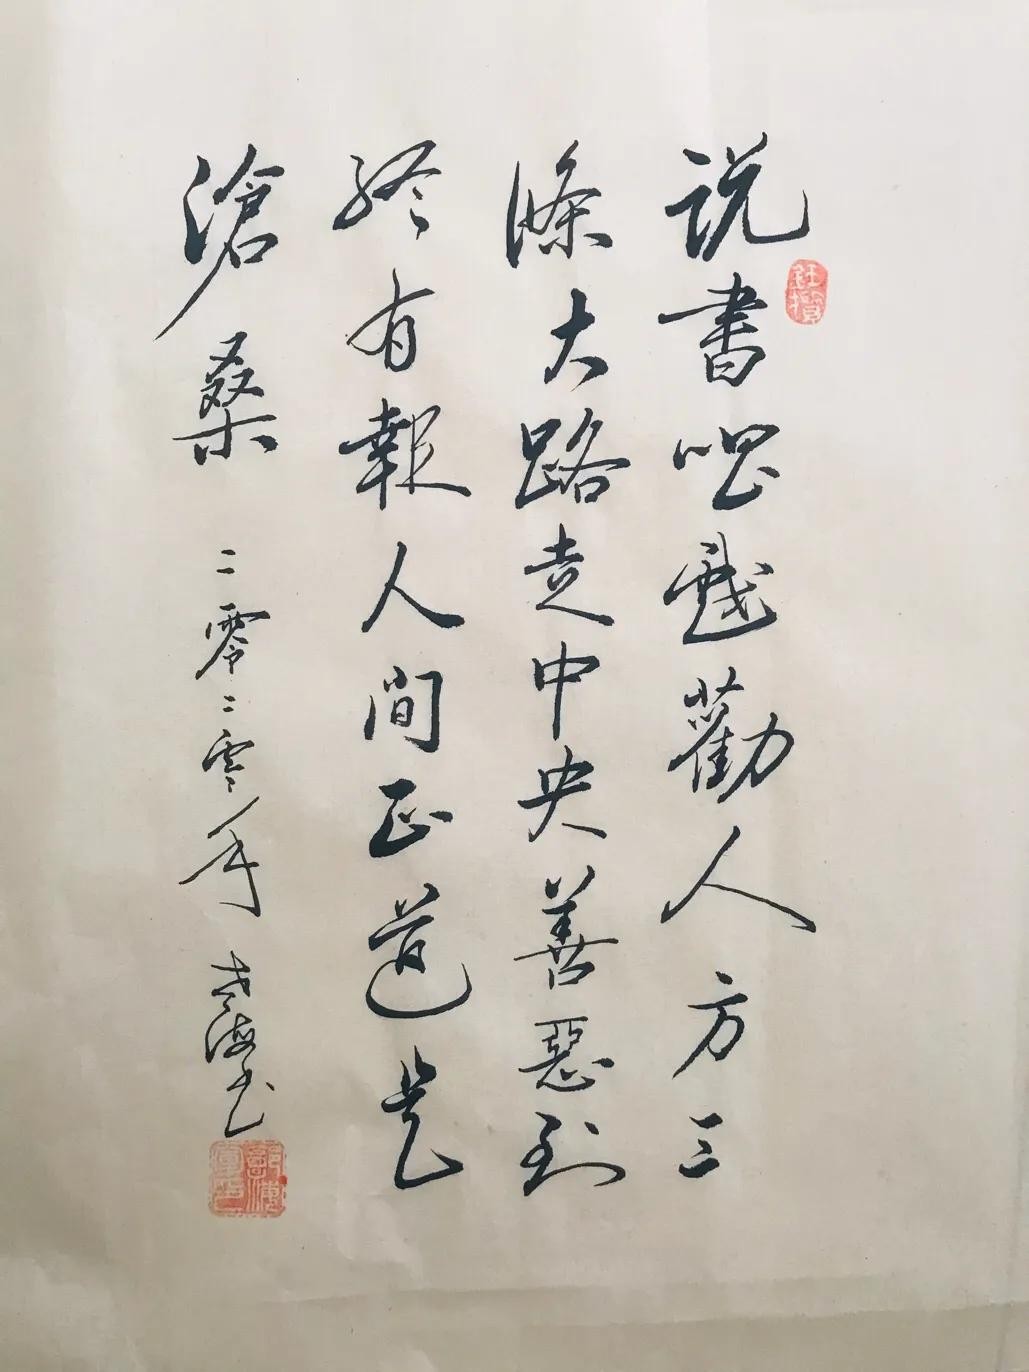 说書唱戲勸人方三
條大路走中央善惡到
終有報人間正道是
滄桑 二零二零年 海书